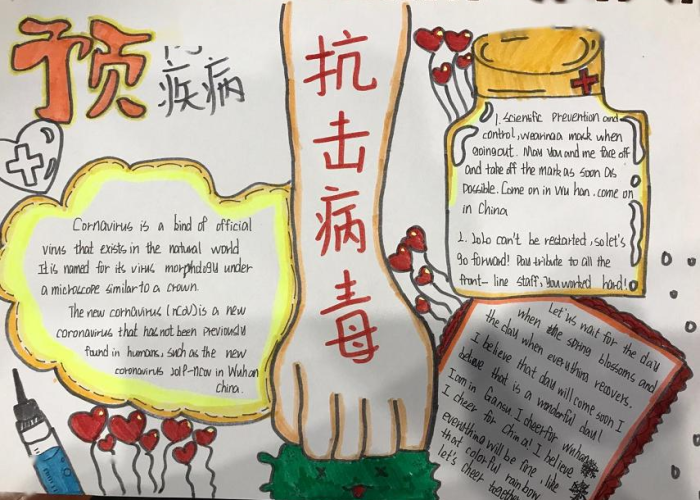 预防
疾病
抗击病毒
Cornavirus is a bind of official
virus that exists in the natural world
It is named for its virus morphology under
a microscope similar to a crown.
The new cornavirus (ncov) is a new
coronavirus that has not been previously
found in humans, such as the new
coronavirus 2019-ncov in Wuhan
China.
1. Scientific Prevention and
control, wearing a mask when
going out. May You and me face off
and take off the mark as soon as
Possible. Come on in Wu han. come on
in China
2. 2020 can't be restarted, so let's
go forward! Pay tribute to all the
front-line staff, You worked hard!
Let's wait for the day
when the spring blossoms and
the day when everything recovers.
I believe that day will come soon I
believe that is a wonderful day!
I am in Gansu. I cheer for Wuhan
I cheer for China! I believe
everything will be fine, like
that colorful rainbow
let's cheer together